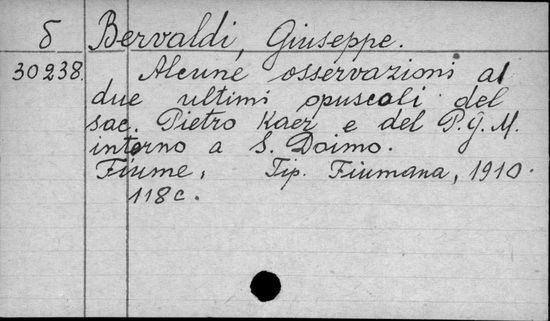 б Bervaldi, Giuseppe.
30238. Alcune osservazioni ai
due ultimi opuscoli del
sac. Pietro Kaer e del P.G.M.
intorno a S. Doimo.
Fiume, Tip. Fiumana, 1910.
118c.